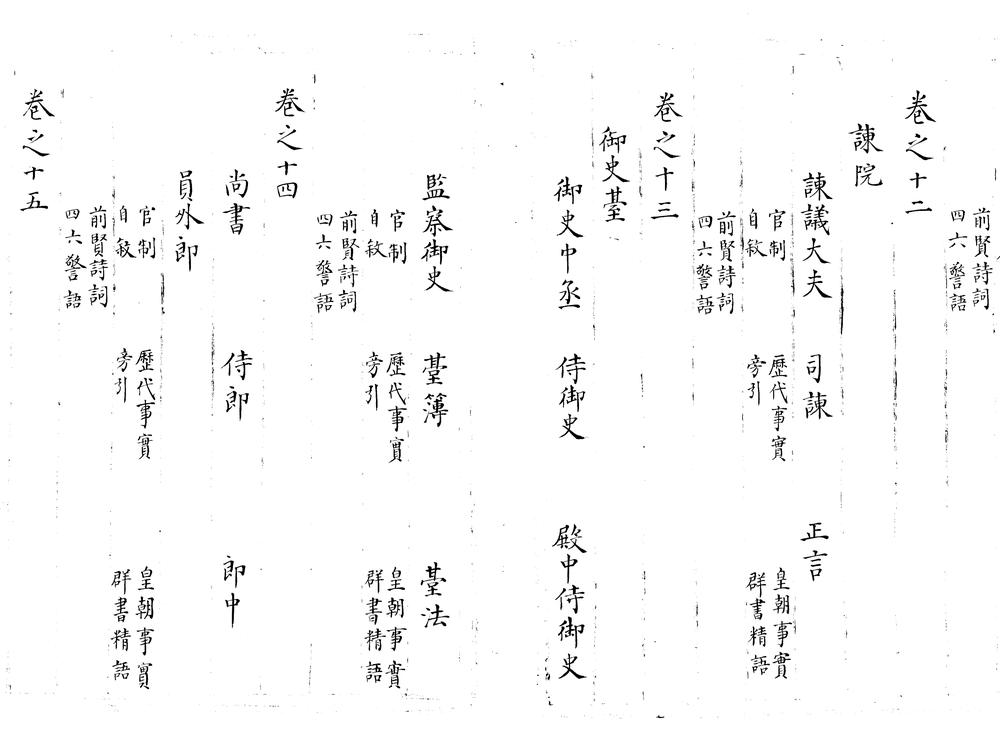 前賢詩詞
四六警語
卷之十二
諫院
諫議大夫 司諫 正言
官制 歷代事實 皇朝事實
自敘 旁引 群書精語
前賢詩詞
四六警語
卷之十三
御史臺
御史中丞 侍御史 殿中侍御史
監察御史 臺簿 臺法
官制 歷代事實 皇朝事實
自敘 旁引 群書精語
前賢詩詞
四六警語
卷之十四
尚書 侍郎 郎中
員外郎
官制 歷代事實 皇朝事實
自敘 旁引 群書精語
前賢詩詞
四六警語
卷之十五